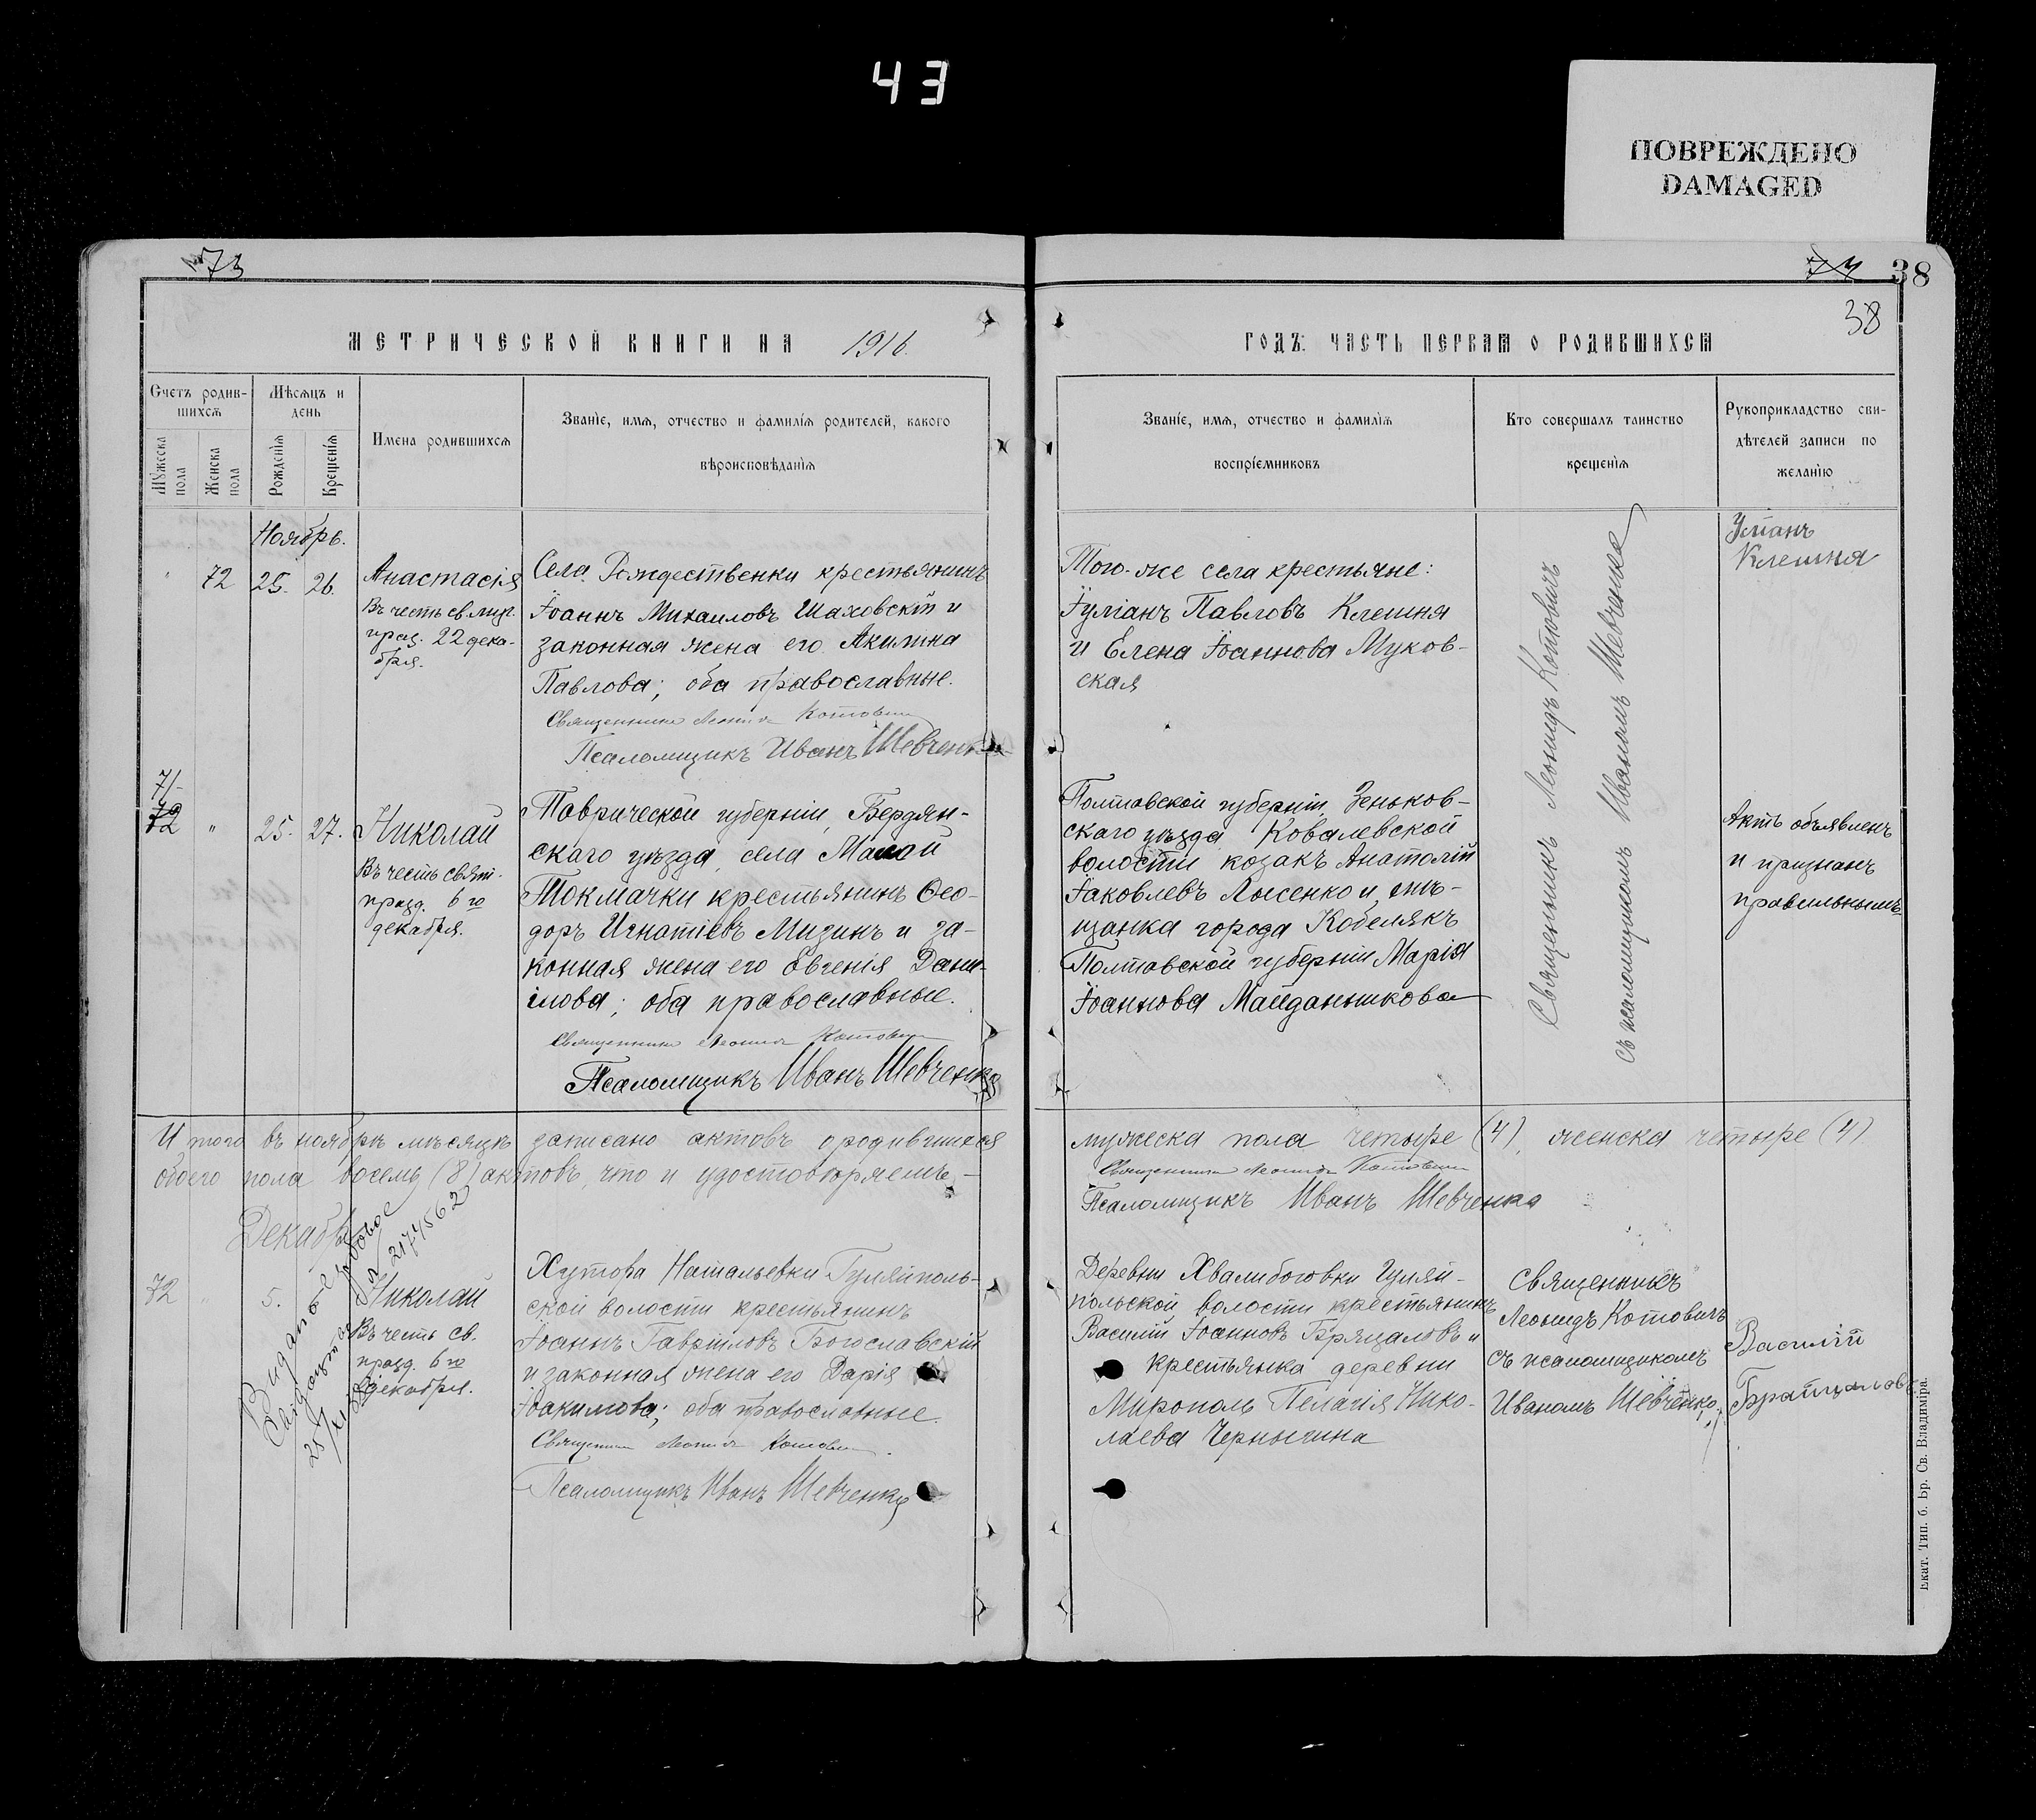 43
ПОВРЕЖДЕНО
DAMAGED
73
74
38
38
МЕТРИЧЕСКОЙ КНИГИ НА 1916.
ГОДЪ: ЧАСТЬ ПЕРВАѦ О РОДИВШИХСѦ
Счетъ родив-
шихсѧ
Мѣсѧцъ и
день
Мꙋжеска
пола
Женска
пола
Рожденїѧ
Крещенїѧ
Имена родившихсѧ
Званїе, имѧ, отчество и фамилїѧ родителей, какого
вѣроисповѣданїѧ
Званїе, имѧ, отчество и фамилїѧ
воспрїемниковъ
Кто совершалъ таинство
крещенїѧ
Рукоприкладство сви-
дѣтелей записи по
желанїю
Ноябрь.
" 72 25. 26.
Анастасія
Въ честь св. муч.
празд. 22 дека-
бря.
Села Рождественки крестьянинъ
Іоаннъ Михаиловъ Шаховскій и
законная жена его Акилина
Павлова; оба православные.
Священникъ Леонидъ Котовичъ
Псаломщикъ Иванъ Шевченко
Того-же села крестьяне:
Іуліанъ Павловъ Клешня
и Елена Іоаннова Муков-
ская
Священникъ Леонидъ Котовичъ
съ псаломщикомъ Иваномъ Шевченко
Уліанъ
Клешня
71
72 " 25. 27.
Николай
Въ честь свят.
празд. 6го
декабря.
Таврической губерніи, Бердян-
скаго уѣзда, села Малой
Токмачки крестьянинъ Ѳео-
доръ Игнатіевъ Мизинъ и за-
конная жена его Евгенія Дани-
илова; оба православные.
Священникъ Леонидъ Котовичъ
Псаломщикъ Иванъ Шевченко
Полтавской губерніи, Зеньков-
скаго уѣзда Ковалевской
волости козакъ Анатолій
Іаковлевъ Лысенко и мѣ-
щанка города Кобелякъ
Полтавской губерніи Марія
Іоаннова Майданникова
Актъ объявленъ
и признанъ
правильнымъ
Итого въ ноябрѣ мѣсяцѣ записано актовъ о родившихся
мужеска пола четыре (4), женска четыре (4)
обоего пола восемь (8) актовъ, что и удостовѣряемъ –
Священникъ Леонидъ Котовичъ
Псаломщикъ Иванъ Шевченко
Декабрь
72 " 5.
Николай
Въ честь св.
празд. 6го
декабря.
Хутора Натальевки Гуляйполь-
ской волости крестьянинъ
Іоаннъ Гавріиловъ Богославскій
и законная жена его Дарія
Іоакимова; оба православные.
Священникъ Леонидъ Котовичъ.
Псаломщикъ Иванъ Шевченко
Деревни Хвалибоговки Гуляй-
польской волости крестьянинъ
Василій Іоанновъ Брацаловъ и
крестьянка деревни
Мирополь Пелагія Нико-
лаева Чернычина
Священникъ
Леонидъ Котовичъ
съ псаломщикомъ
Иваномъ Шевченко
Василій
Екат. Тип. б. Бр. Св. Владиміра.